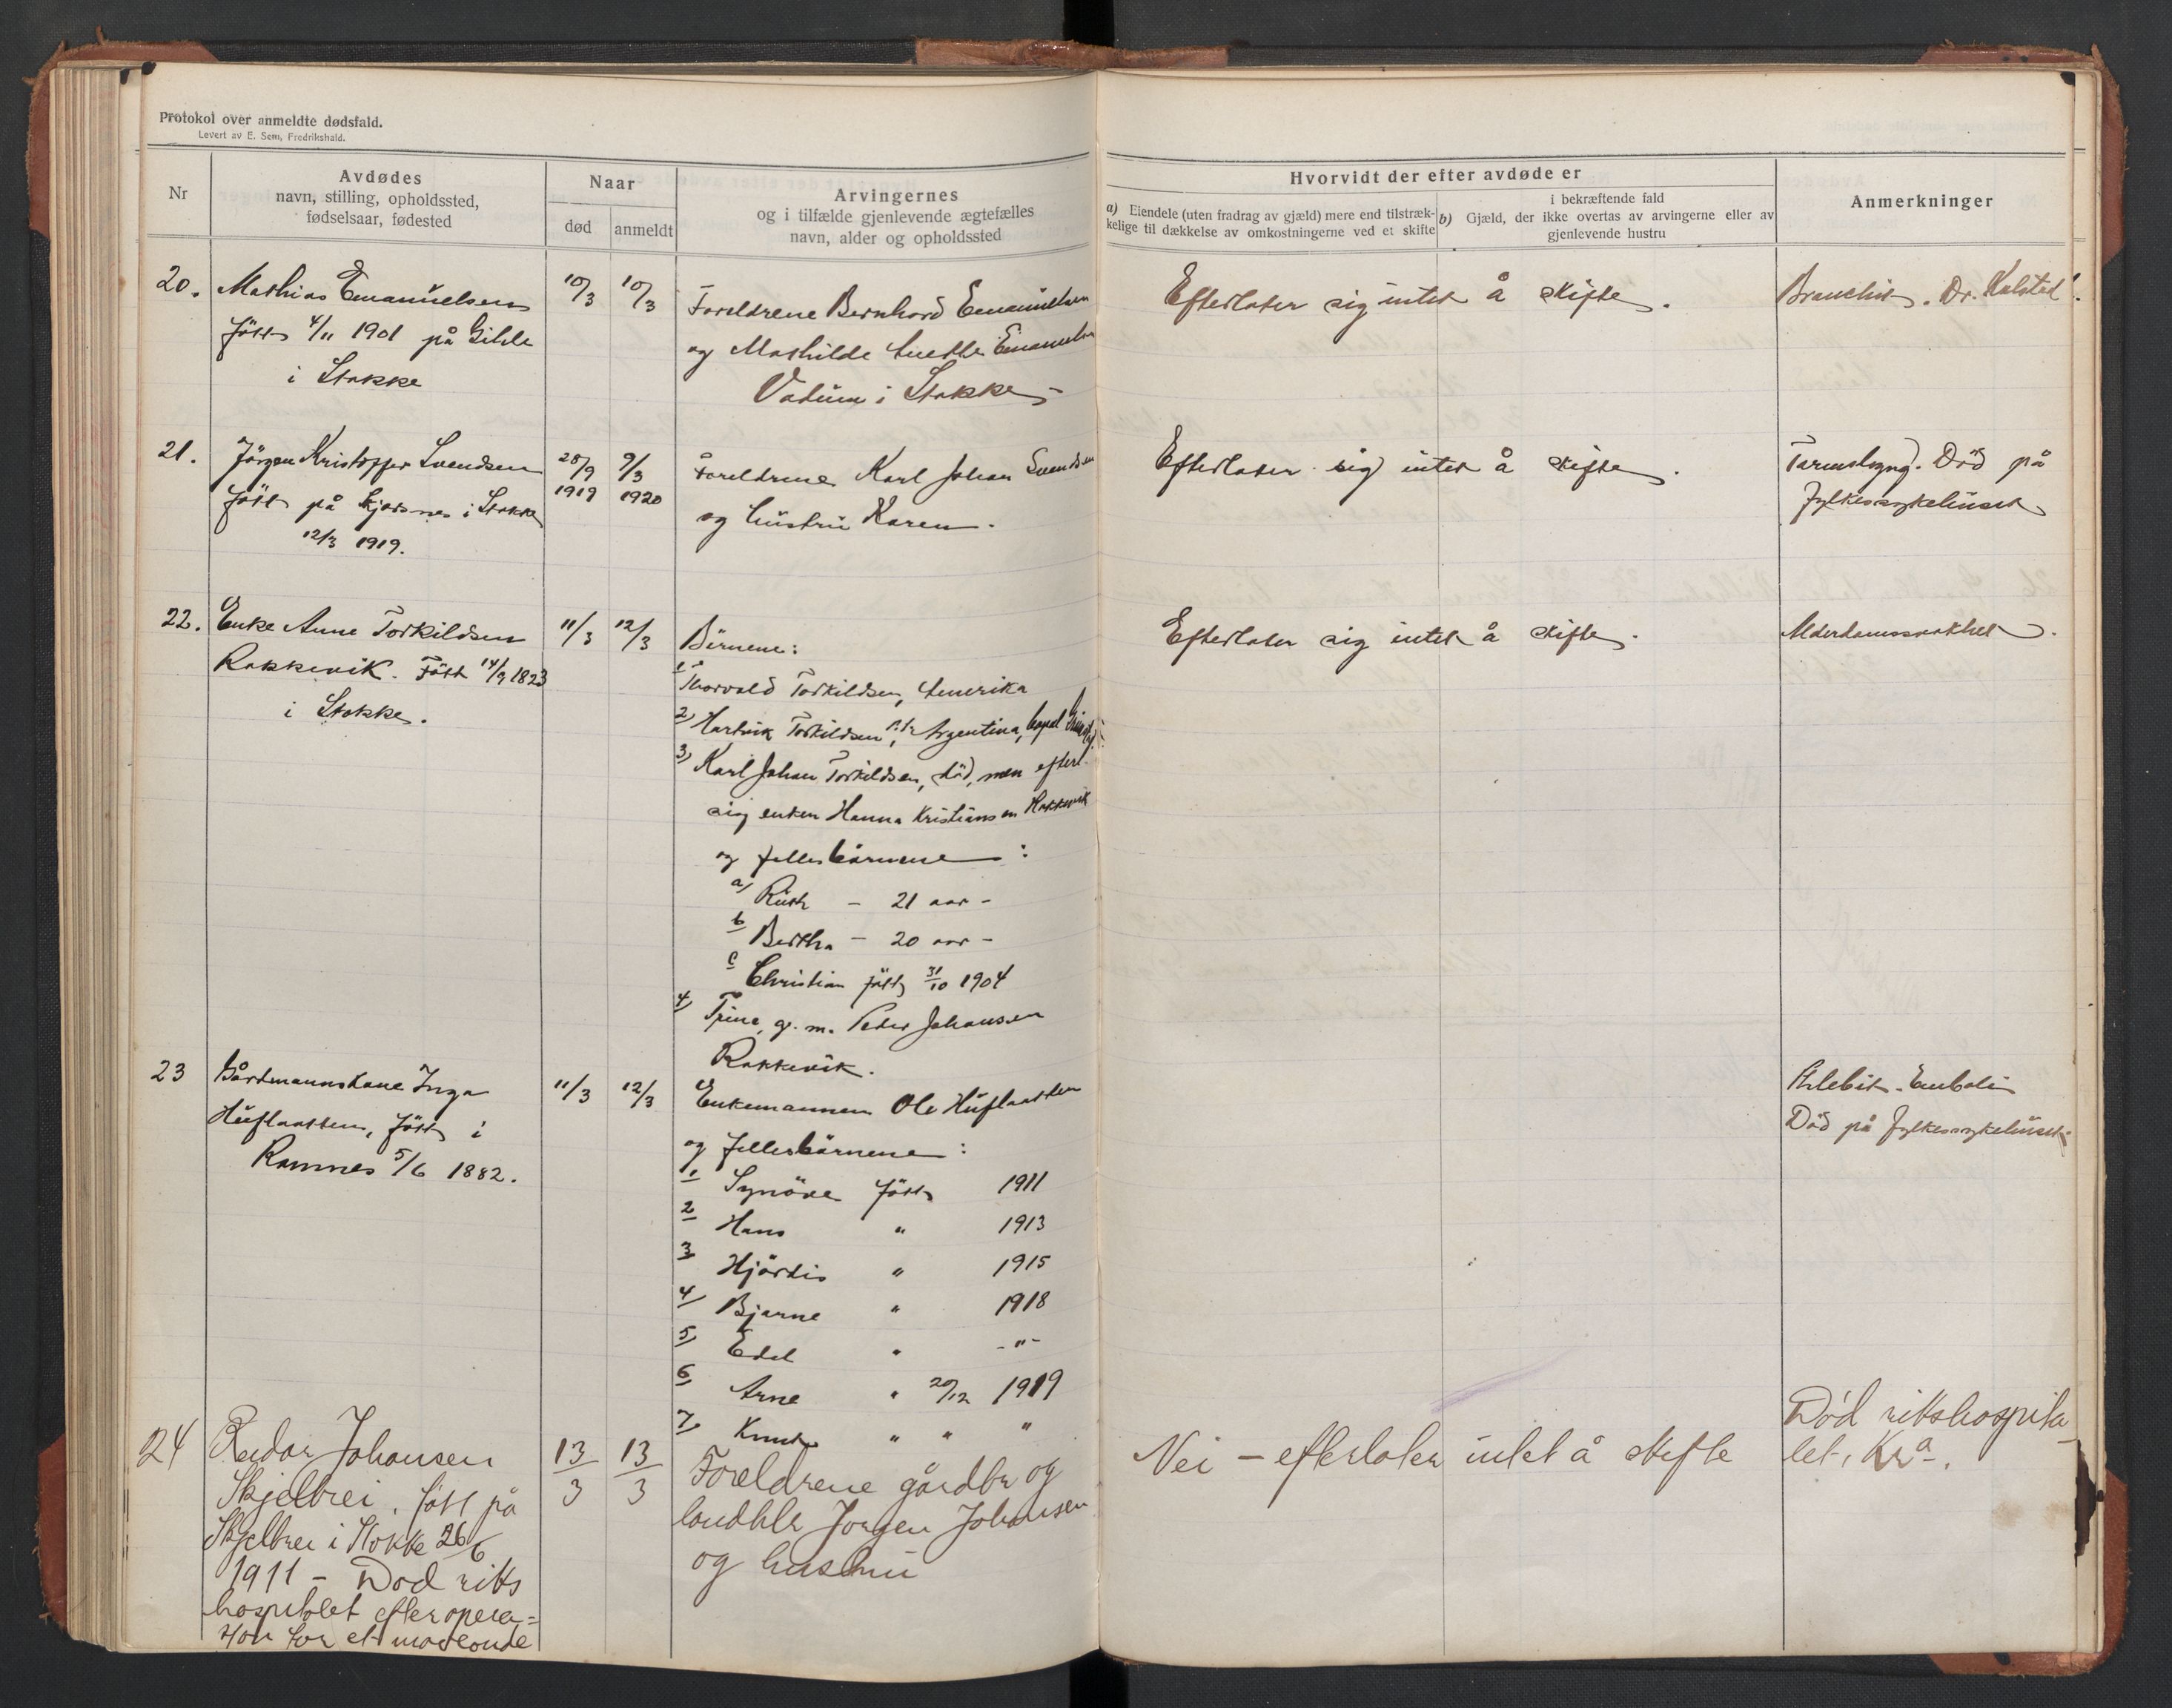 Protokol over anmeldte dødsfald.
Levert av E. Sem, Fredrikshald.
Nr
Avdødes
navn, stilling, opholdssted,
fødselsaar, fødested
Naar
død
anmeldt
Arvingernes
og i tilfælde gjenlevende ægtefælles
navn, alder og opholdssted
Hvorvidt der efter avdøde er
a) Eiendele (uten fradrag av gjæld) mere end tilstræk-
kelige til dækkelse av omkostningerne ved et skifte
i bekræftende fald
b) Gjæld, der ikke overtas av arvingerne eller av
gjenlevende hustru
Anmerkninger
20.
Mathias Emanuelsen
född 4/11 1901 på Gihle
i Stokke
10/3
10/3
Foreldrene Bernhard Emanuelsen
og Mathilde Anette Emanuelsen
Vadum i Stokke
Efterlater sig intet å skifte.
Bronchit. Dr. Kalstad.
21.
Jörgen Kristoffer Svendsen
född på i Stokke
12/3 1919.
28/9
1919
9/3
1920
Foreldrene Karl Johan Svendsen
og hustru Karen.
Efterlater sig intet å skifte.
Tarmslyng. Död på
Fylkessykehuset
22.
Enke Anne Torkildsen
Rakkevik. Född 14/9 1823
i Stokke.
11/3
12/3
Börnene:
1) Thorvald Torkildsen, Amerika
2) Hartvik Torkildsen, p.t. Argentina,
3) Karl Johan Torkildsen, död, men efterl.
sig enken Hanna Kristiansen Rakkevik
og fellesbörnene:
a) Ruth - 21 aar -
b Bertha - 20 aar -
c Christian född 31/10 1904
4) Trine, g. m. Peder Johansen
Rakkevik.
Efterlater sig intet å skifte.
Alderdomssvakhet.
23
Gårdmannskone Inga
Huflaatten, född i
Ramnes 5/6 1882.
11/3
12/3
Enkemannen Ole Huflaatten
og fellesbörnene:
1 Synöve född 1911
2 Hans " 1913
3 Hjördis " 1915
4) Bjarne " 1918
5) Edel " -"-
6 Arne " 20/12 1919
7) Knut " " "
Flebit. Emboli
Död på Fylkessykehuset.
24
Reidar Johansen
Skjelbrei, född på
Skjelbrei i Stokke 26/6
1911 - Död riks
hospitalet efter opera=
sjon for et
13/3
13/3
Foreldrene gårdbr og
landhlr Jørgen Johansen
og hustru
Nei - efterlater intet å skifte
Död rikshospita
let, Kra.